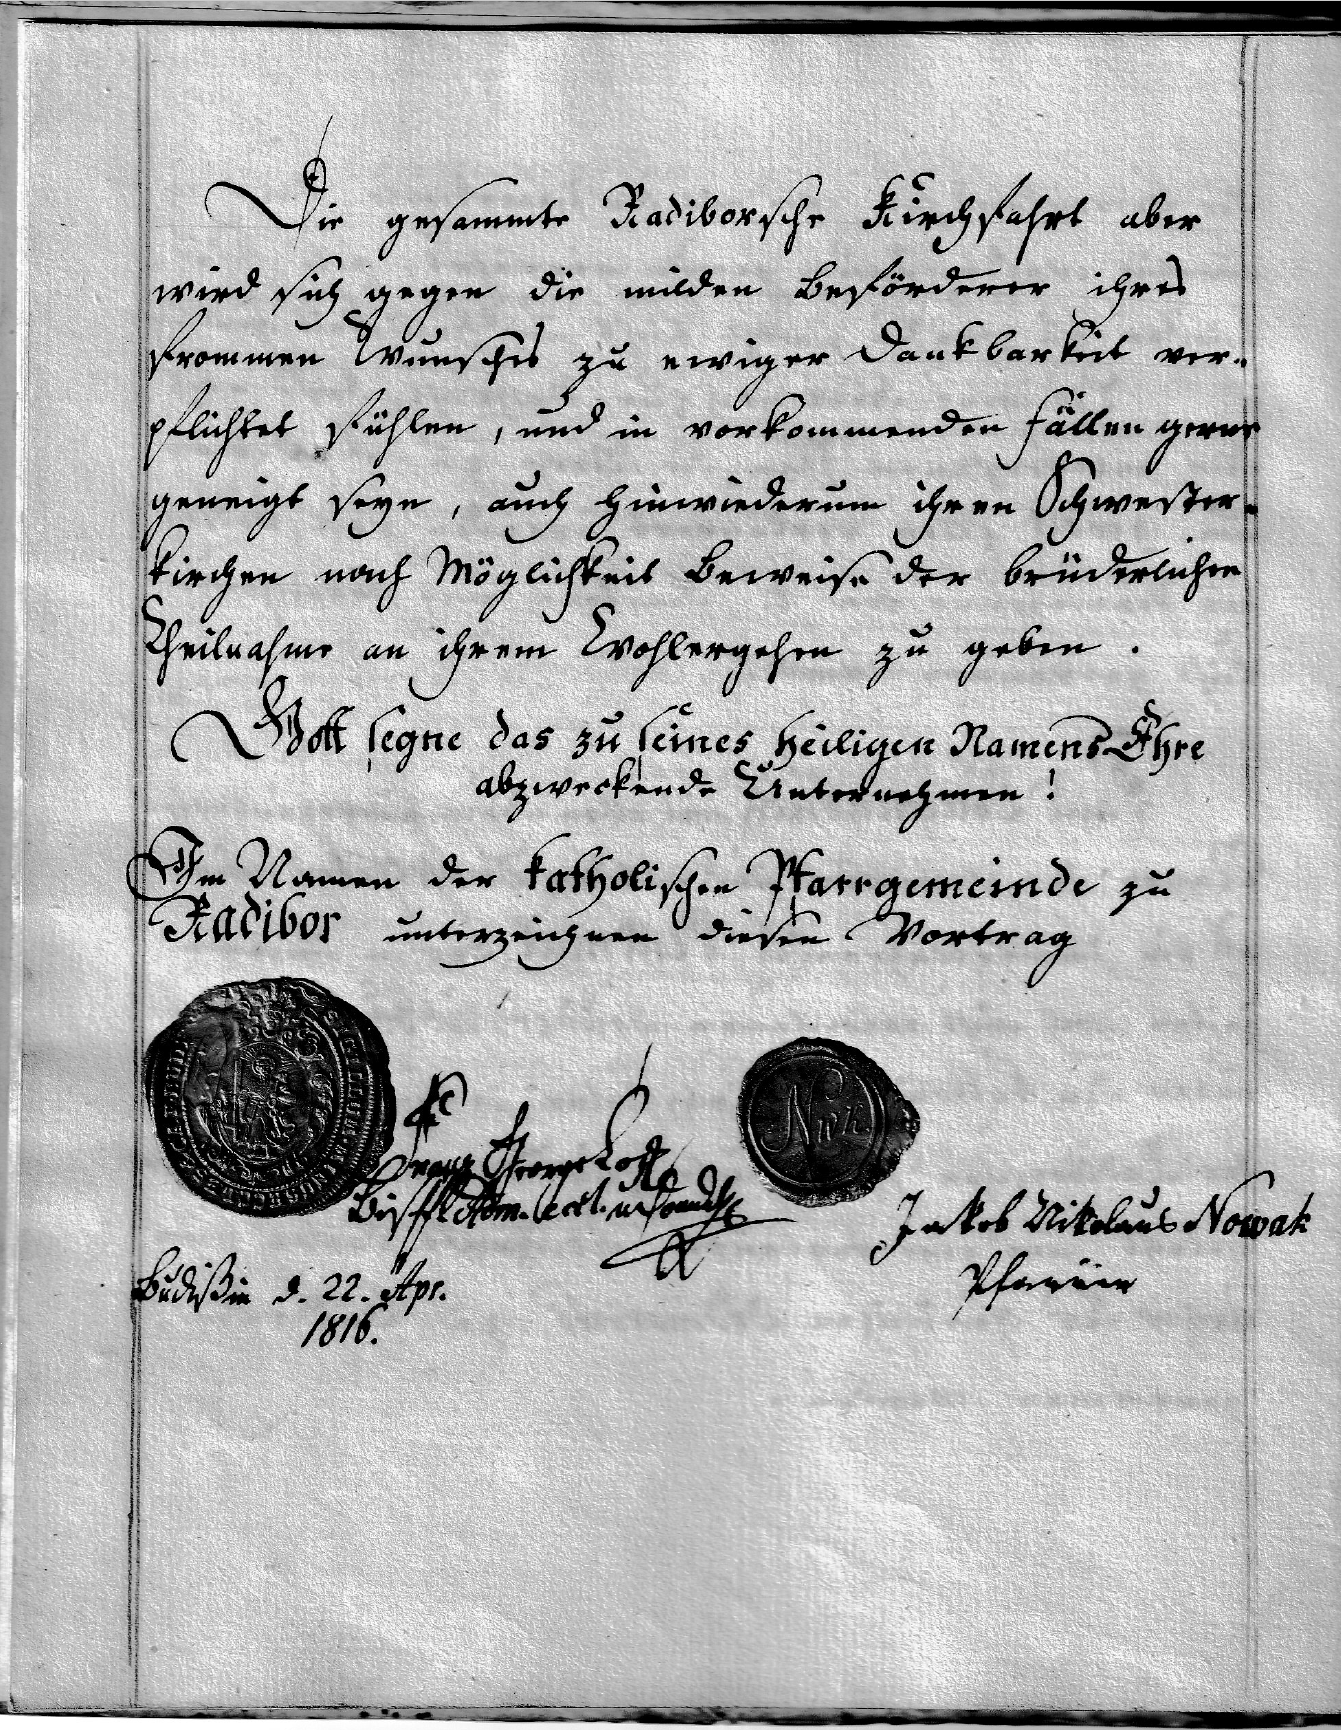 Die gesammte Radiborsche Kirchfahrt aber
wird sich gegen die milden Beförderer ihres
frommen Wunsches zu ewiger Dankbarkeit ver-
pflichtet fühlen, und in vorkommenden Fällen gerne
geneigt seyn, auch hinwiederum ihren Schwester-
kirchen nach Möglichkeit Beweise der brüderlichen
Theilnahme an ihrem Wohlergehen zu geben.
Gott segne das zu seines heiligen Namens Ehre
abzweckende Unternehmen!
Im Namen der katholischen Pfarrgemeinde zu
Radibor unterzeichnen diesen Vortrag
Franz George Lock
Bischfl. Adm. eccl.
Jakob Nikolaus Nowak
Pfarrer
Budißin d. 22. Apr.
1816.